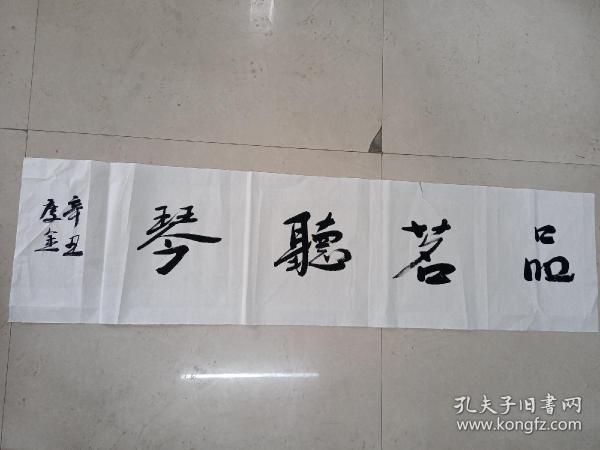 品茗聽琴
辛丑
度金
孔夫子旧書网
www.kongfz.com